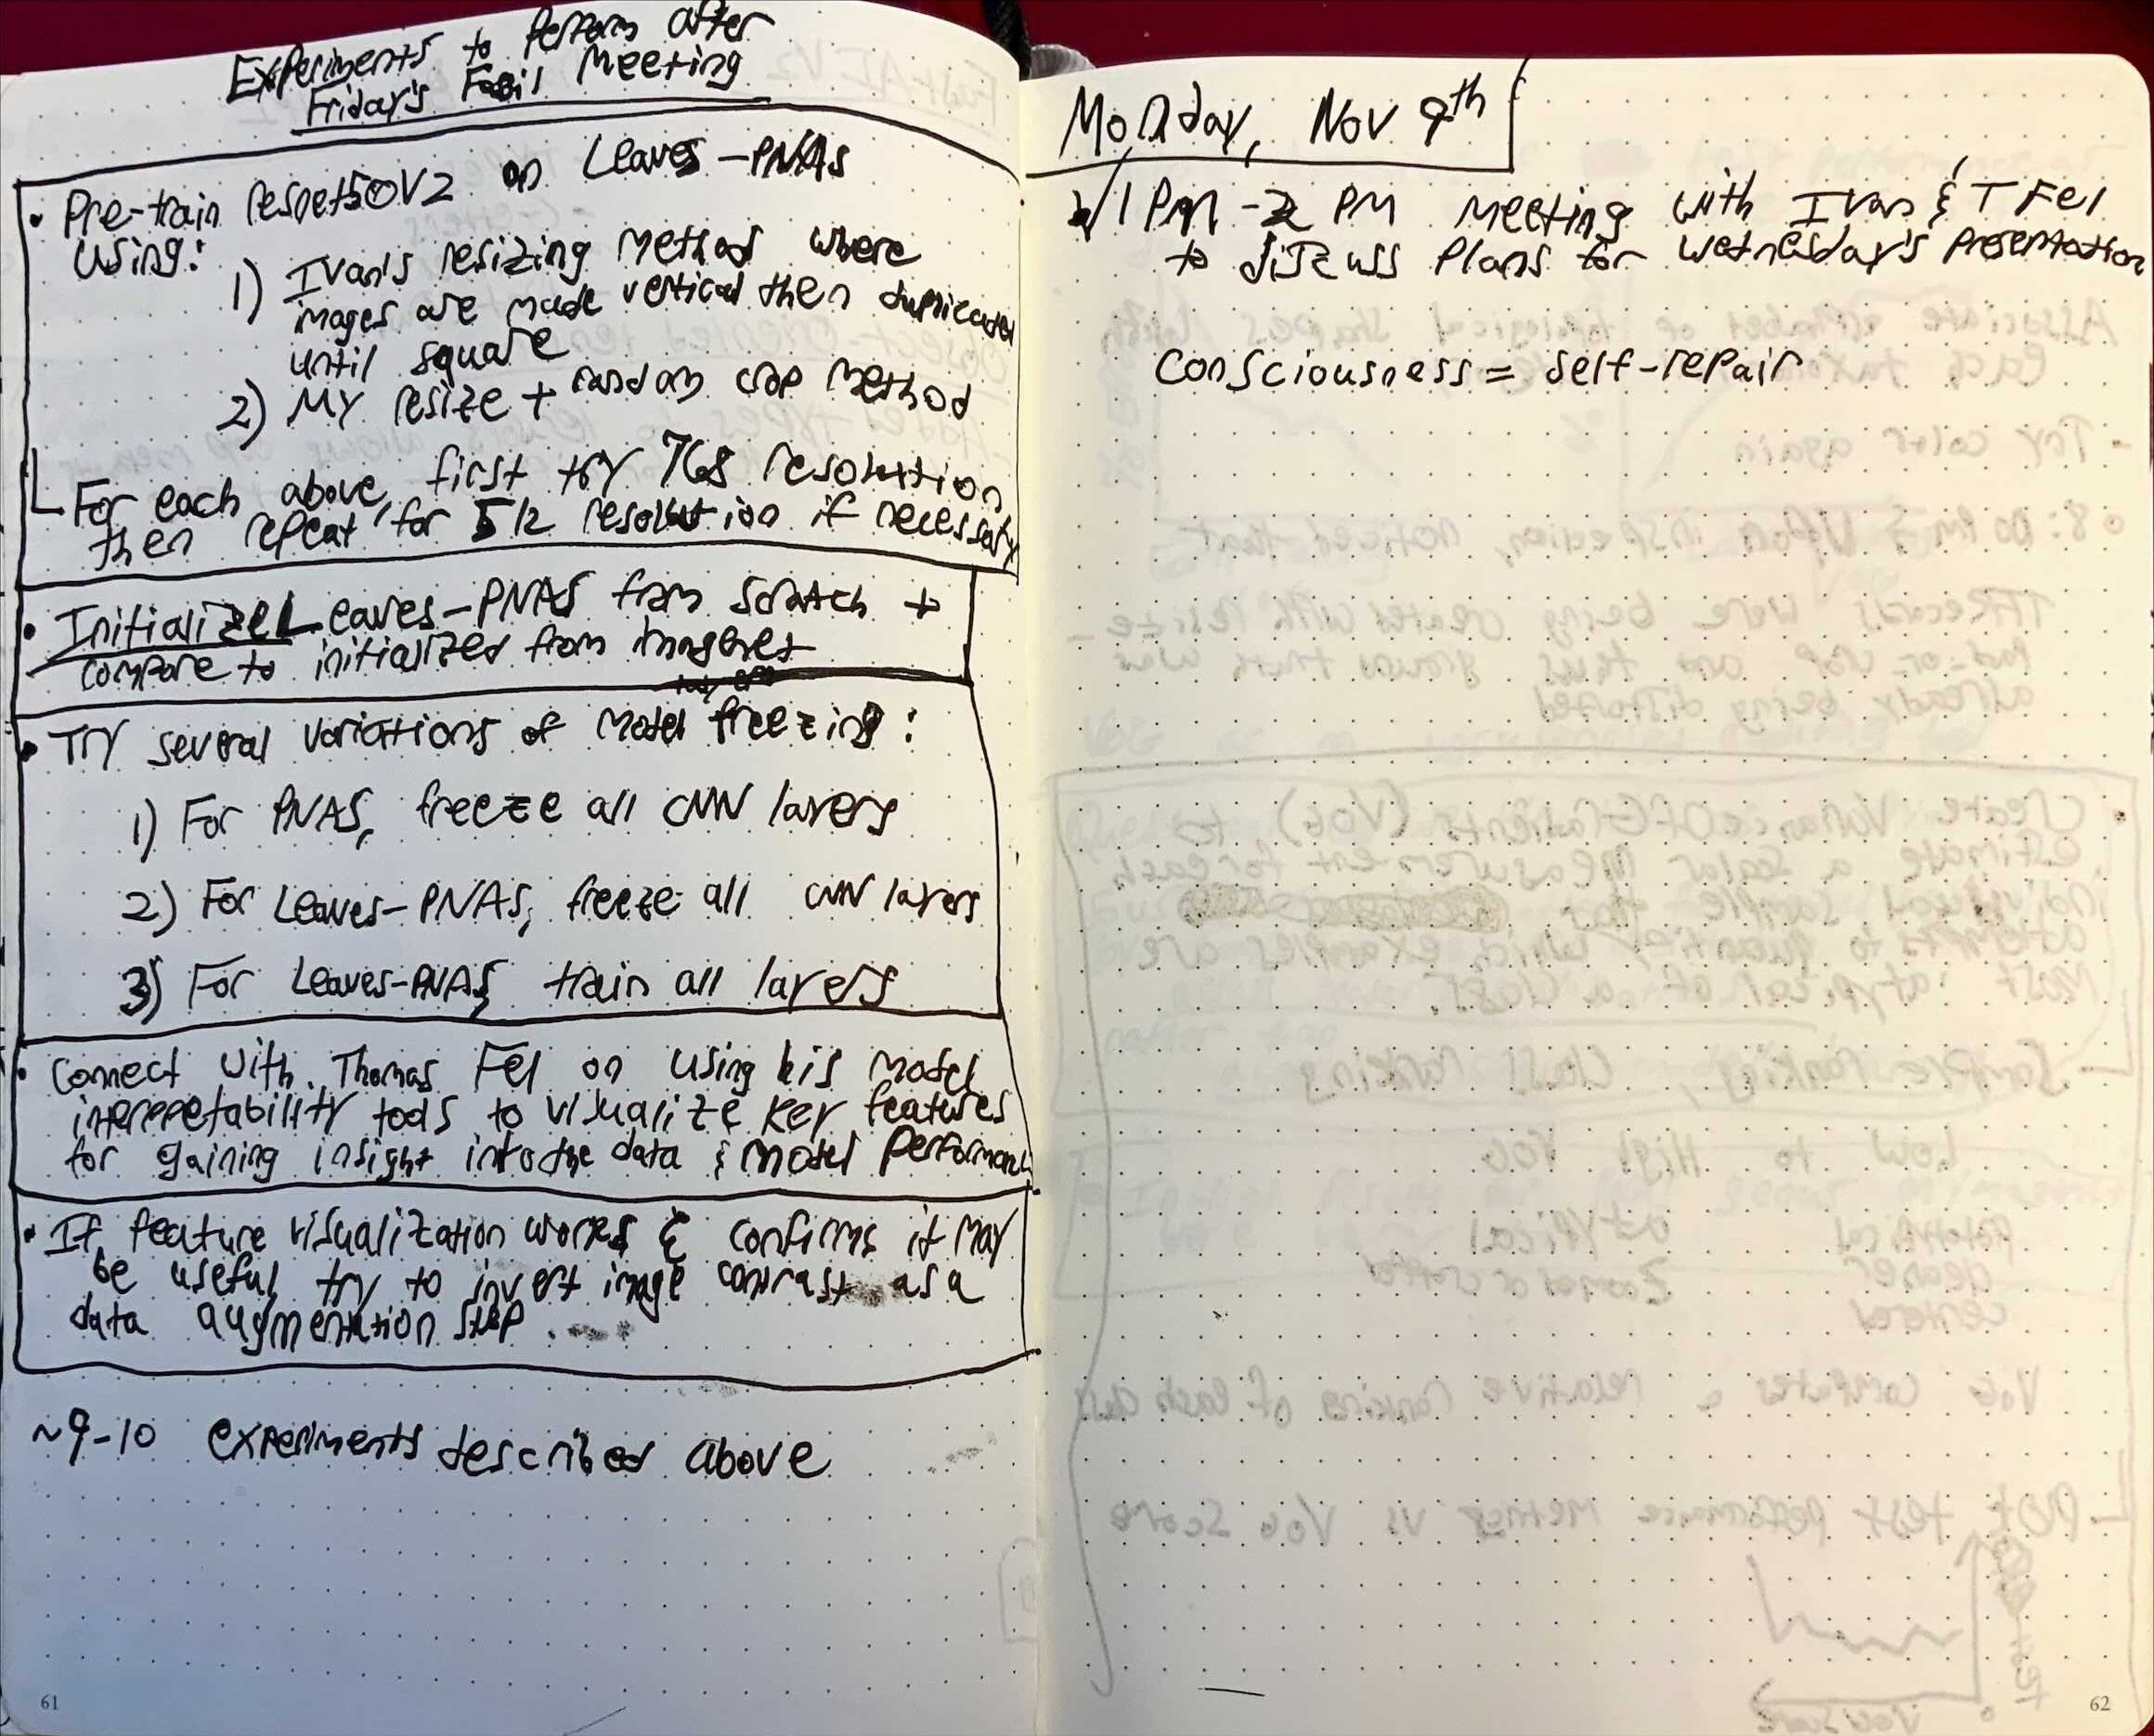 Experiments to perform after
Friday's Fossil Meeting
• Pre-train resnet50V2 on Leaves-PNAS
using:
1) Ivan's resizing method where
images are made vertical then duplicated
until square
2) My resize + random crop method
For each above, first try 768 resolution
then repeat for 512 resolution if necessary
• Initialize Leaves-PNAS from scratch +
compare to initialized from imagenet
• Try several variations of model freezing:
1) For PNAS, freeze all CNN layers
2) For Leaves-PNAS, freeze all CNN layers
3) For Leaves-PNAS, train all layers
• Connect with Thomas Fel on using his model
interpretability tools to visualize key features
for gaining insight into the data & model performance
• If feature visualization works & confirms it may
be useful, try to invert image contrast as a
data augmentation step
~9-10 experiments described above
61
Monday, Nov 9th
1 PM - 2 PM Meeting with Ivan & T Fel
to discuss plans for Wednesday's presentation
consciousness = self-repair
62